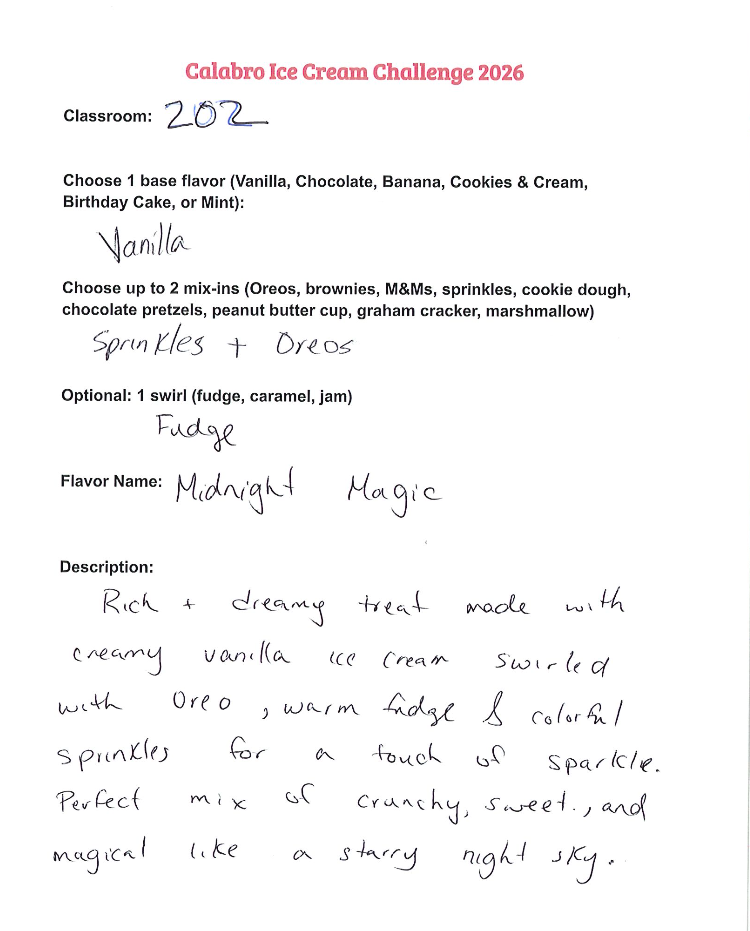 Calabro Ice Cream Challenge 2026
Classroom: 202
Choose 1 base flavor (Vanilla, Chocolate, Banana, Cookies & Cream,
Birthday Cake, or Mint):
Vanilla
Choose up to 2 mix-ins (Oreos, brownies, M&Ms, sprinkles, cookie dough,
chocolate pretzels, peanut butter cup, graham cracker, marshmallow)
Sprinkles + Oreos
Optional: 1 swirl (fudge, caramel, jam)
Fudge
Flavor Name: Midnight Magic
Description:
Rich + dreamy treat made with
creamy vanilla ice cream swirled
with Oreo, warm fudge & colorful
sprinkles for a touch of sparkle.
Perfect mix of crunchy, sweet., and
magical like a starry night sky.